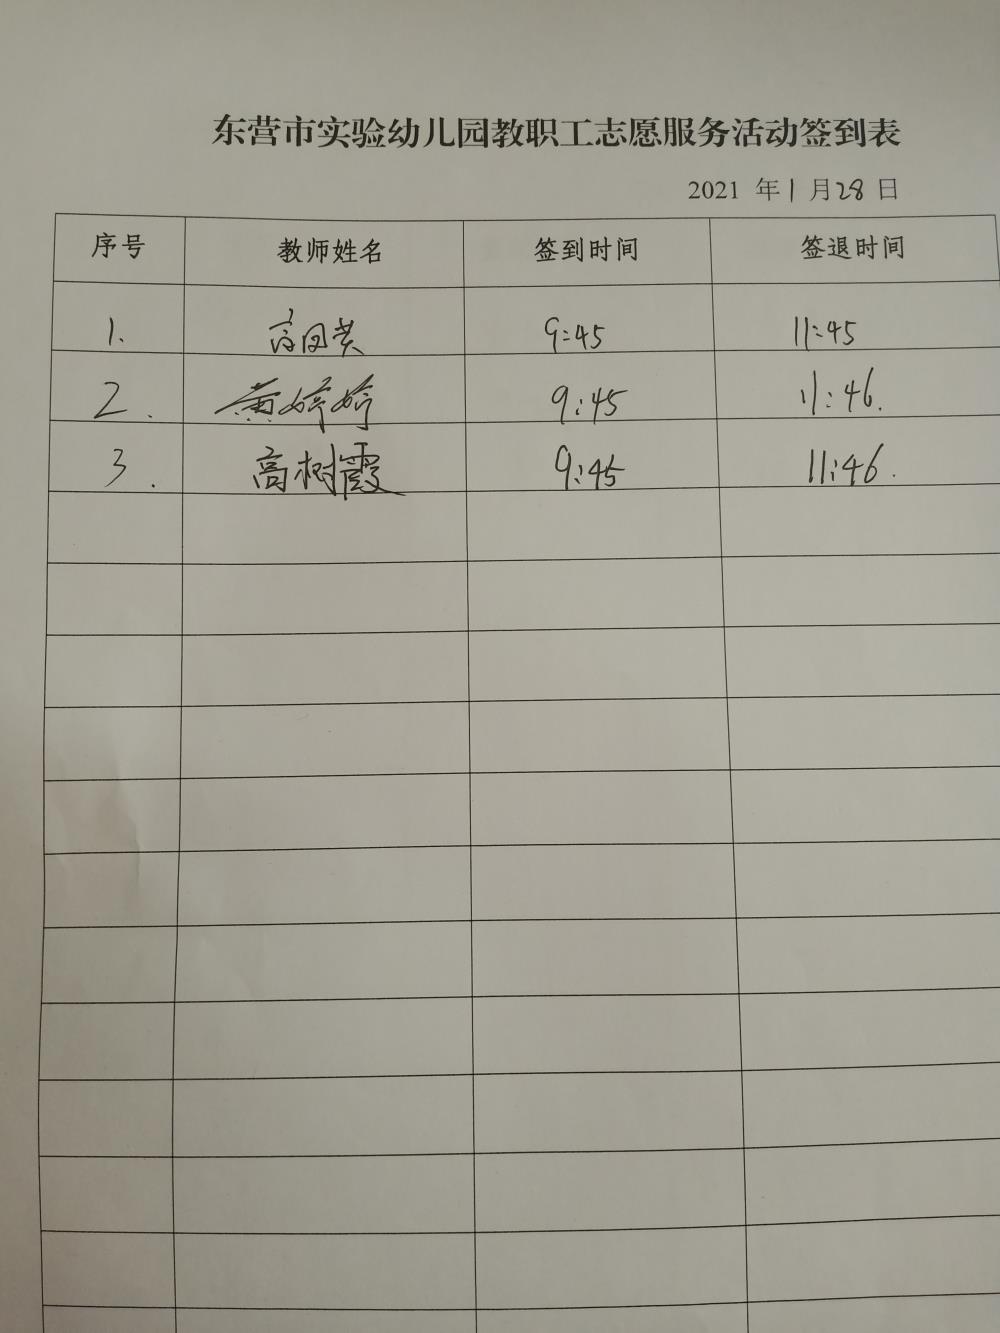 东营市实验幼儿园教职工志愿服务活动签到表
2021 年 1 月 28 日
序号 教师姓名 签到时间 签退时间
1. 9:45 11:45
2. 黄婷婷 9:45 11:46.
3. 高树霞 9:45 11:46.